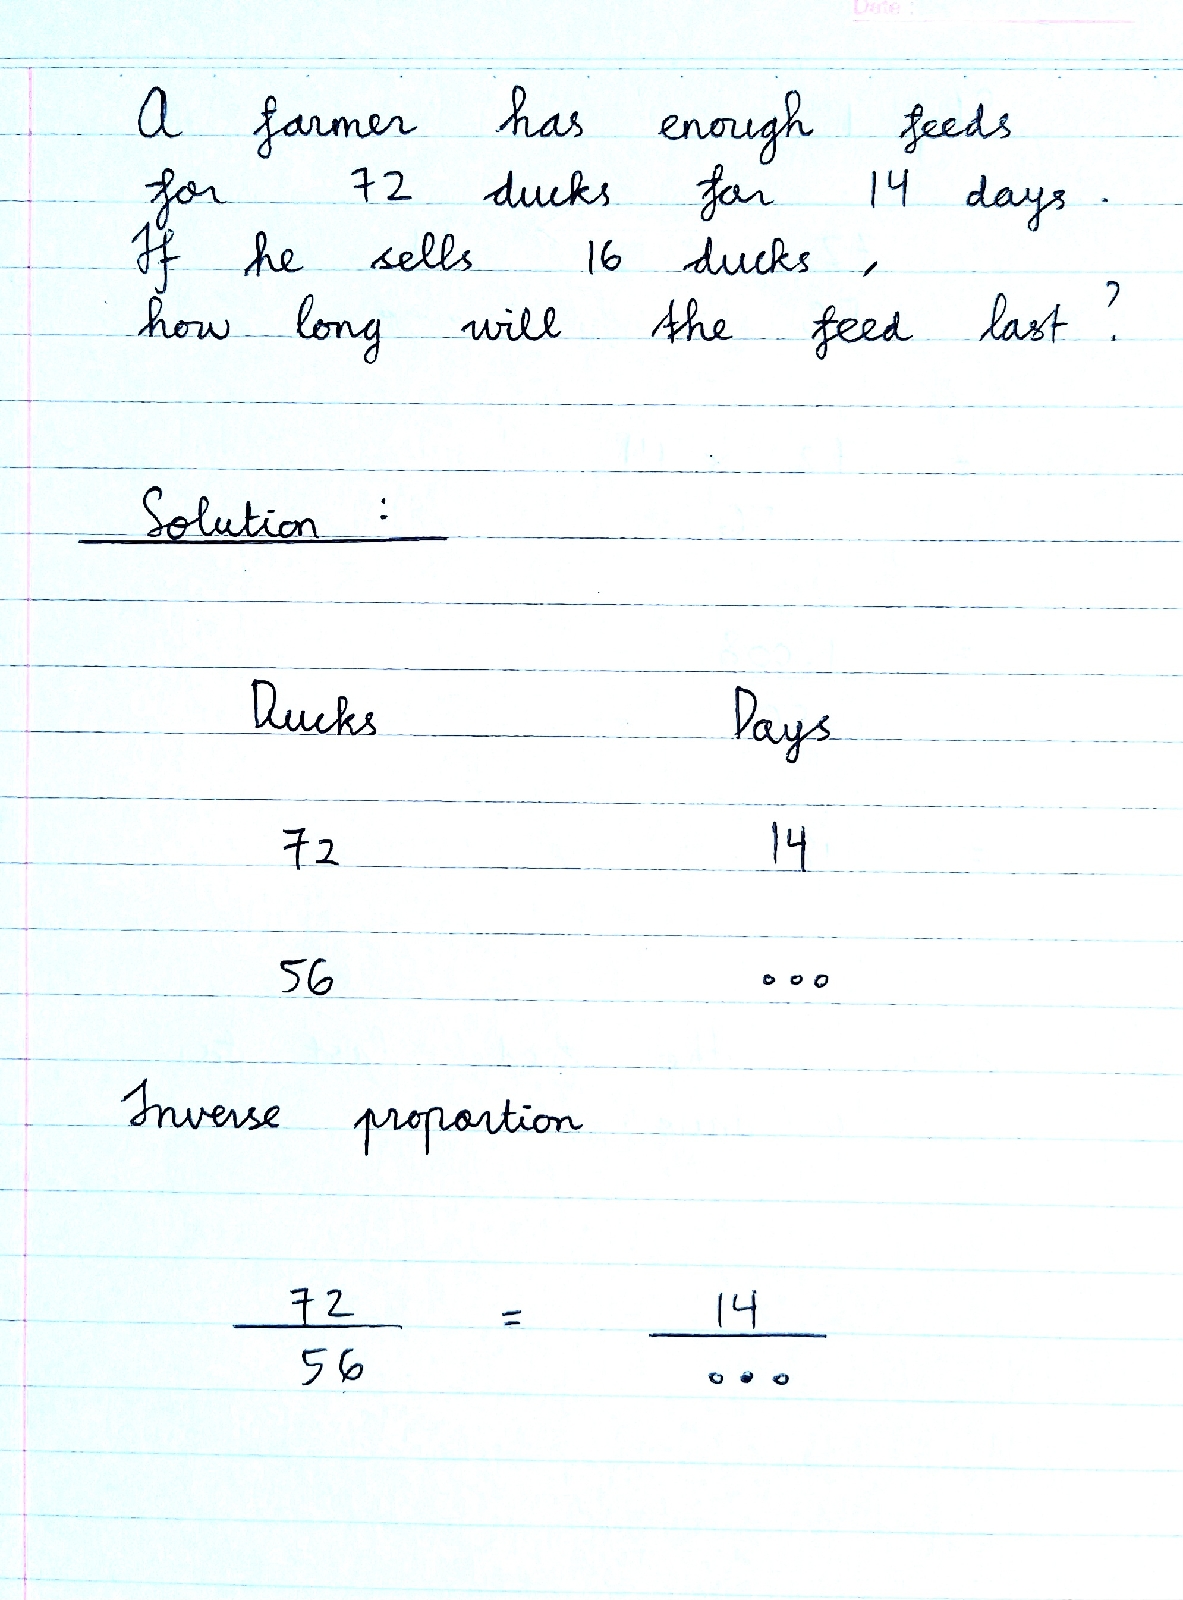 Date :
A farmer has enough feeds
for 72 ducks for 14 days.
If he sells 16 ducks,
how long will the feed last?
Solution :
Ducks Days
72 14
56 ...
Inverse proportion
72 = 14
56 ...